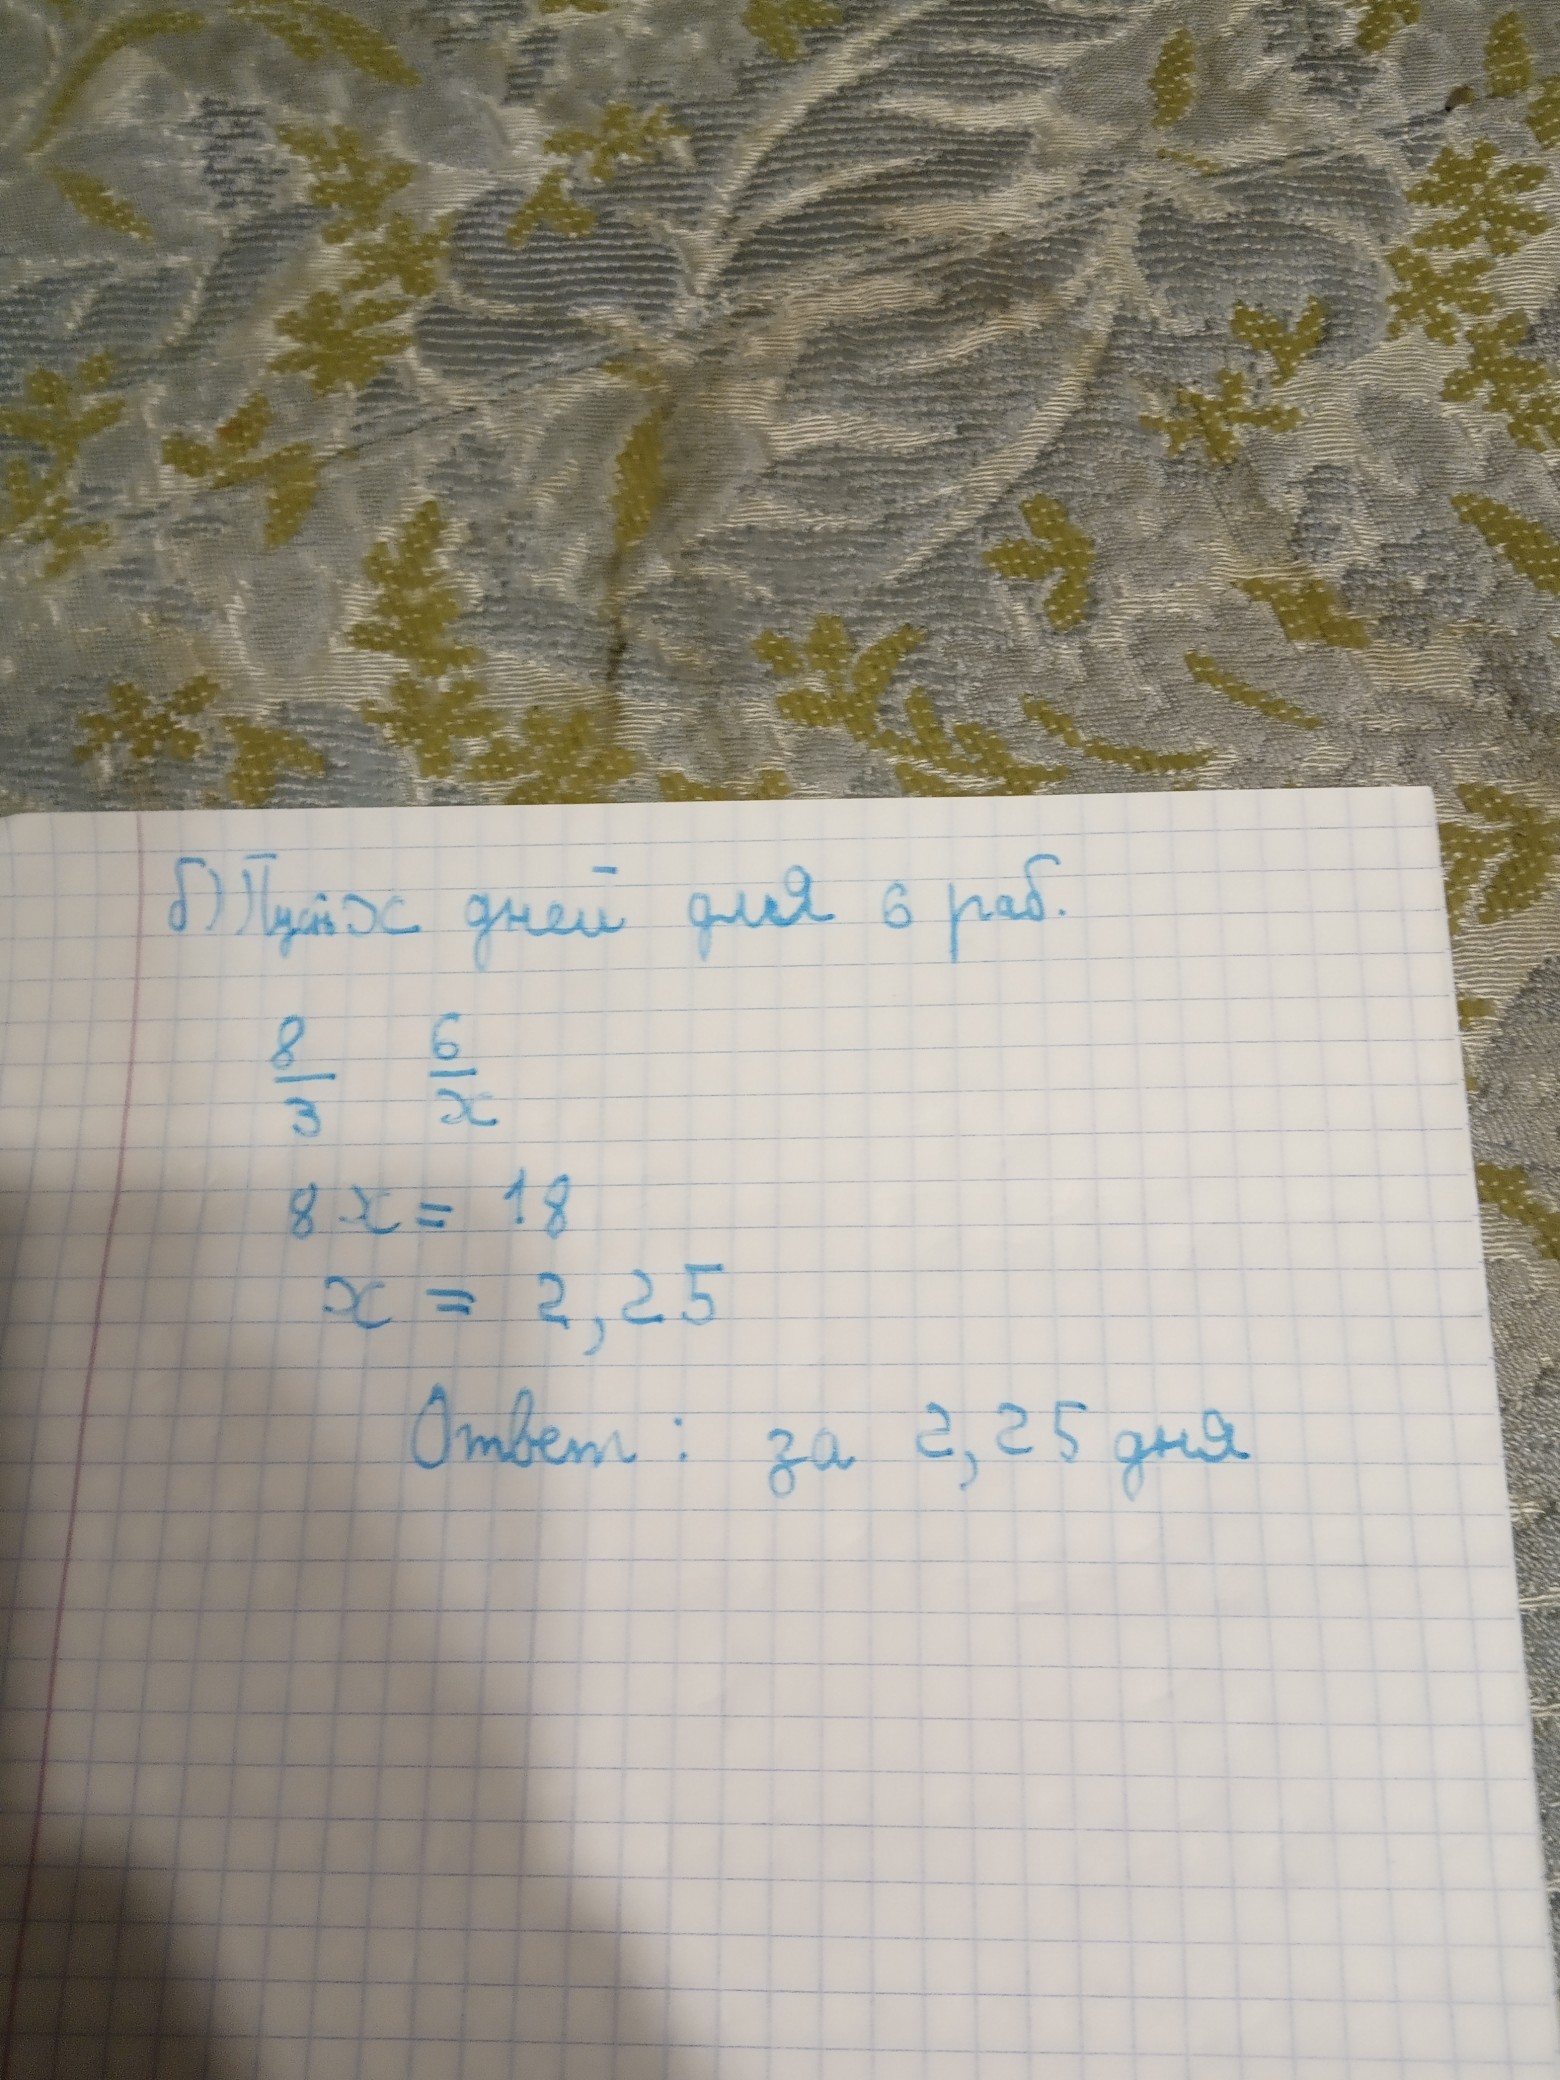 б) Пусть x дней для 6 раб.
8/3 6/x
8x = 18
x = 2,25
Ответ: за 2,25 дня